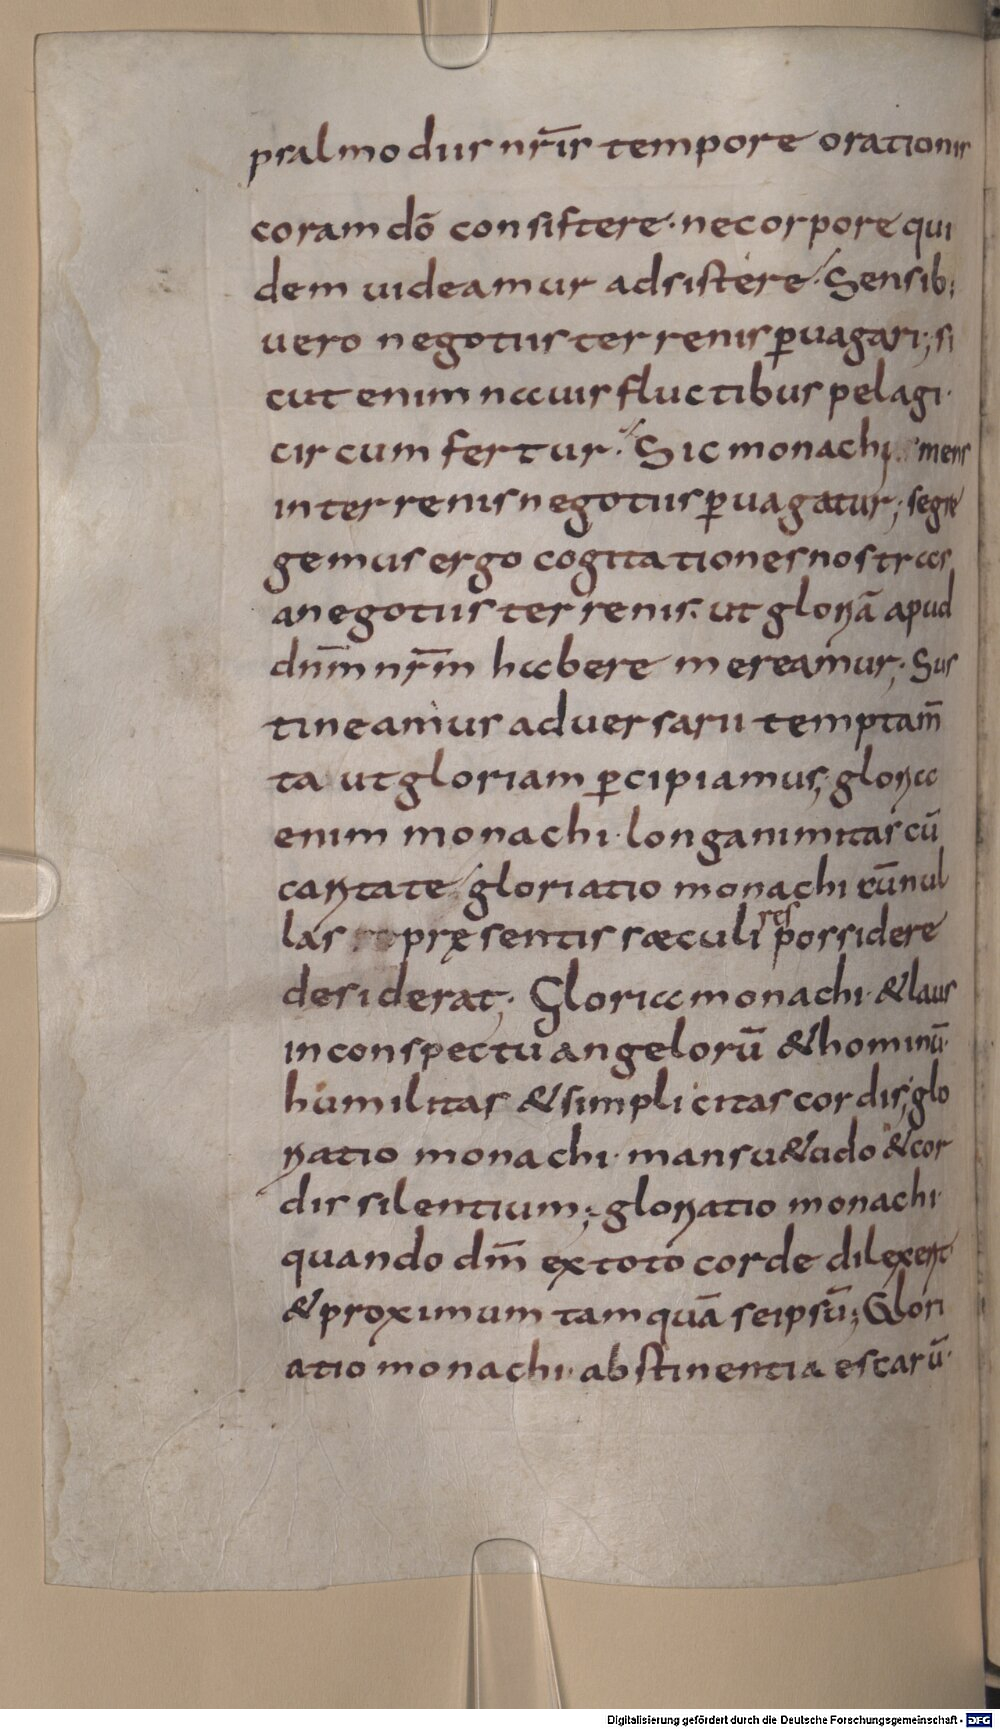 psalmodiis nr̄is tempore orationis
coram dō consistere · ne corpore qui
dem uideamur adsistere · Sensib;
uero negotiis terrenis p̄uagari; si
cut enim nauis fluctibus pelagi ·
circumfertur · Sic monachi mens
in terrenis negotiis p̄uagatur; segre
gemus ergo cogitationes nostras
a negotiis terrenis. ut gloriā apud
dnm̄ nrm̄ habere mereamur; Sus
tineamus aduersarii temptam̄
ta ut gloriam p̄cipiamus; gloria
enim monachi · longanimitas cū
caritate · gloriatio monachi cū nul
las pręsentis sæculi res possidere
desiderat; Gloria monachi · & laus
in conspectu angelorū & hominū ·
humilitas & simplicitas cordis; glo
riatio monachi · mansu&udo & cor
dis silentium; gloriatio monachi ·
quando dm̄ ex toto corde dilexerit
& proximum tamquā seipsū; Glori
atio monachi · abstinentia escarū ·
Digitalisierung gefördert durch die Deutsche Forschungsgemeinschaft - DFG